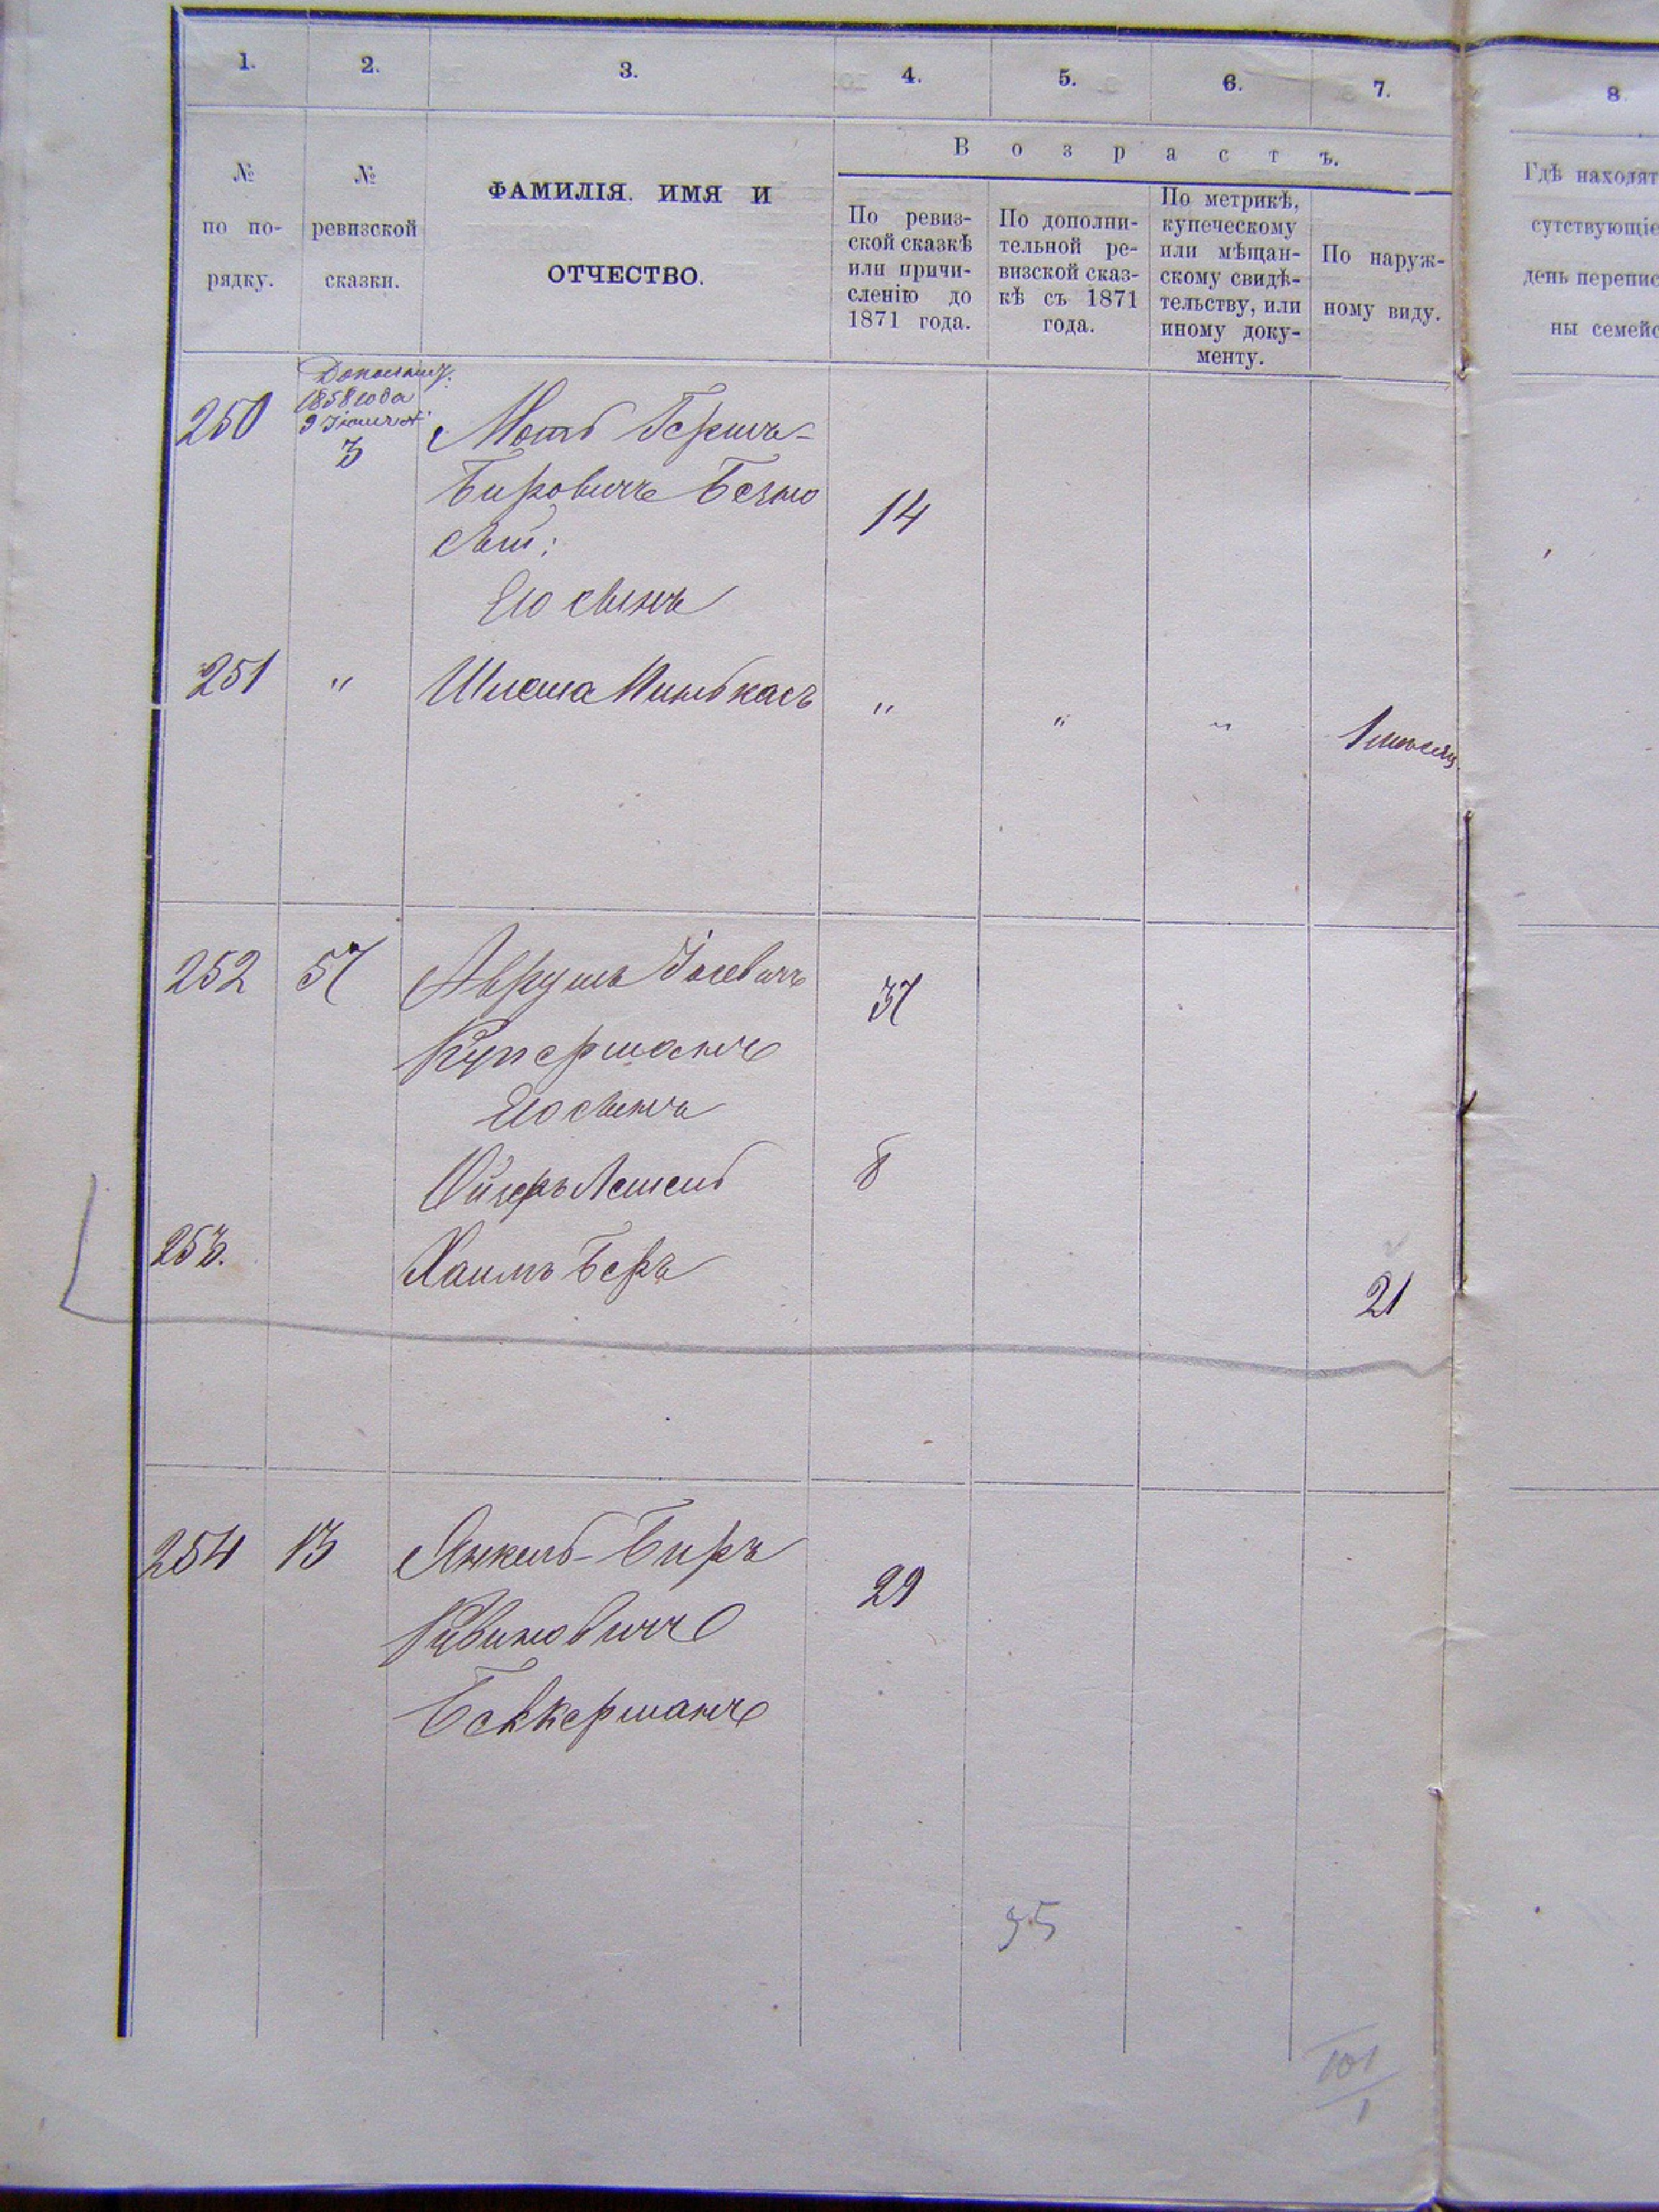 1.
2.
3.
4.
5.
6.
7.
8.
№ по по-рядку.
№ ревизской сказки.
ФАМИЛІЯ. ИМЯ И ОТЧЕСТВО.
Возрастъ.
По ревиз-
ской сказкѣ
или причи-
сленію до
1871 года.
По дополни-
тельной ре-
визской сказ-
кѣ съ 1871
года.
По метрикѣ,
купеческому
или мѣщан-
скому свидѣ-
тельству, или
иному доку-
менту.
По наруж-
ному виду.
Гдѣ находят
сутствующіе
день перепис
ны семейс
1858 года
3
250
Мот Гершъ-
Бировичъ
14
Его сынъ
251 "
" " " 1 мѣсяц
252 57 Аврумъ Іосевичъ
37
Куперманъ
Его сынъ
8
253. Хаимъ Беръ
21
254 13 Янкель-Биръ
29
Рувиновичъ
Беккерманъ
95
101
1